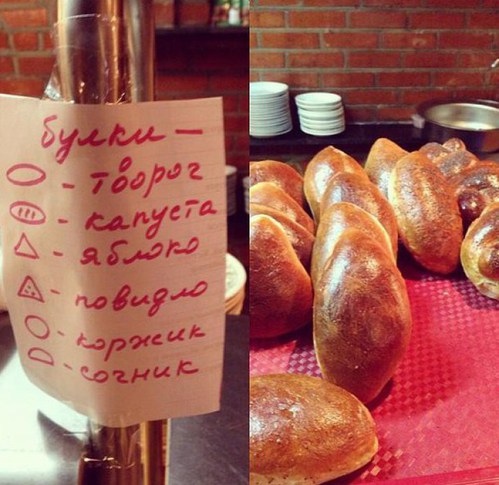 булки —
- творог
- капуста
- яблоко
- повидло
- коржик
- сочник